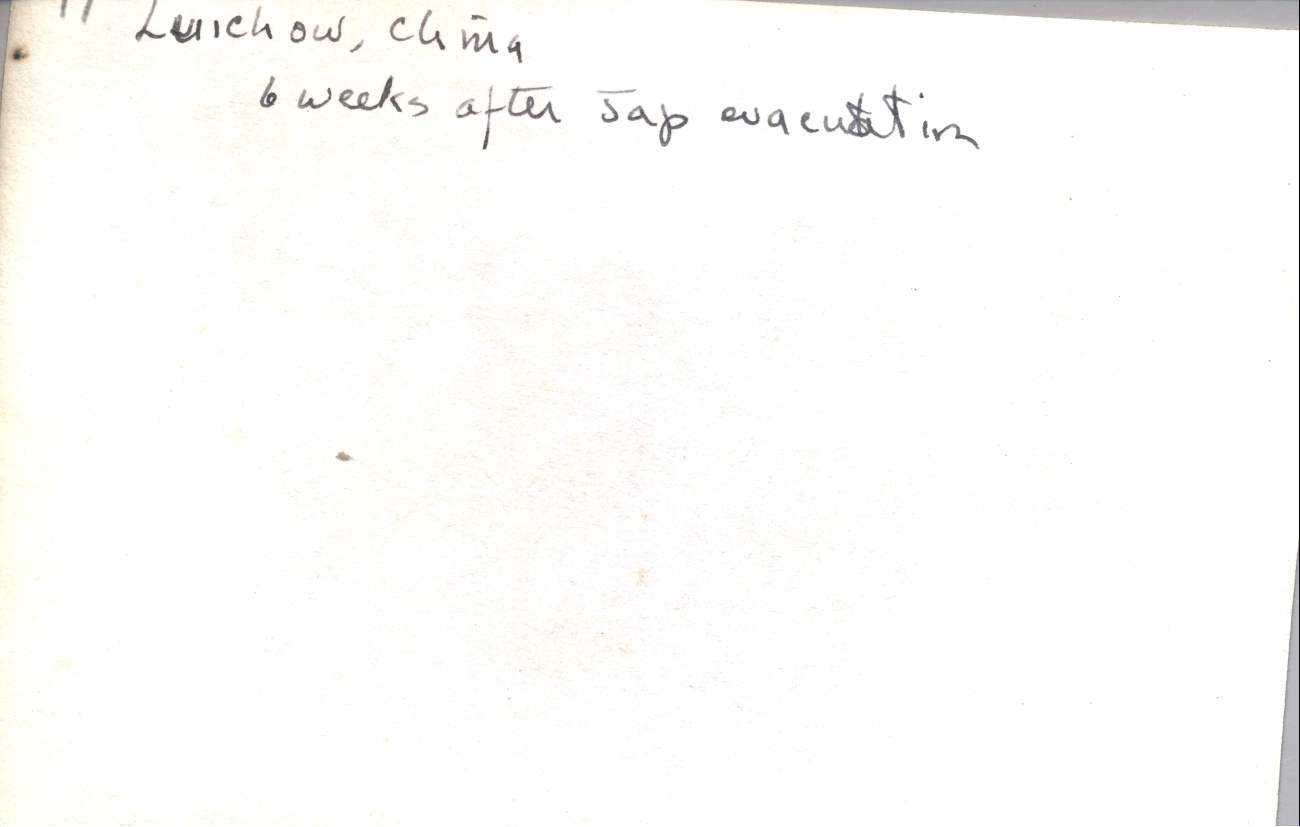 Luichow, China
6 weeks after Jap evacuation